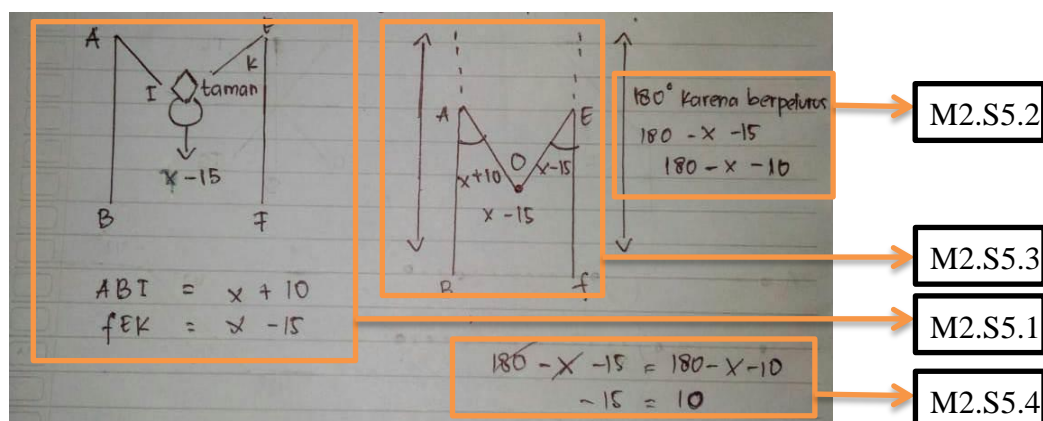 A
E
K
I
taman
x - 15
B
F
ABI = x + 10
fEK = x - 15
A
E
O
x+10
x-15
x - 15
B
f
180° karena berpelurus
180 - x - 15
180 - x - 10
180 - x - 15 = 180 - x - 10
- 15 = 10
M2.S5.2
M2.S5.3
M2.S5.1
M2.S5.4